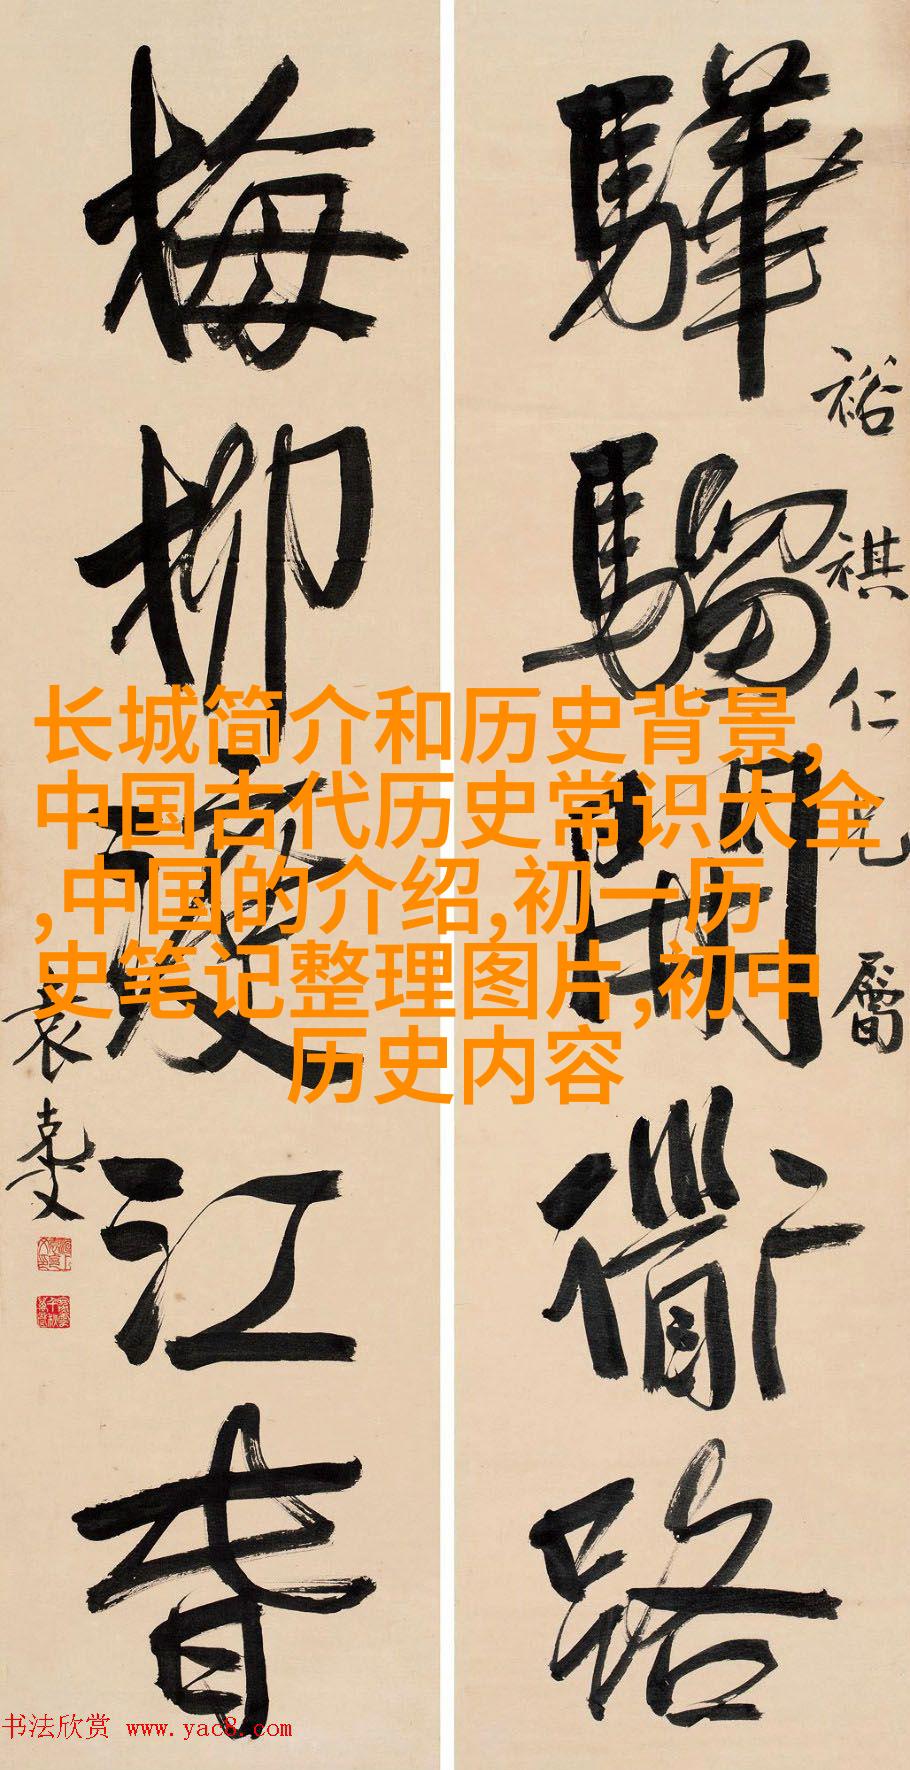 驊騮開衟路
裕祺仁兄屬
梅柳渡江春
袁克文
长城简介和历史背景,
中国古代历史常识大全
,中国的介绍,初一历
史笔记整理图片,初中
历史内容
书法欣赏 www.yac8.com